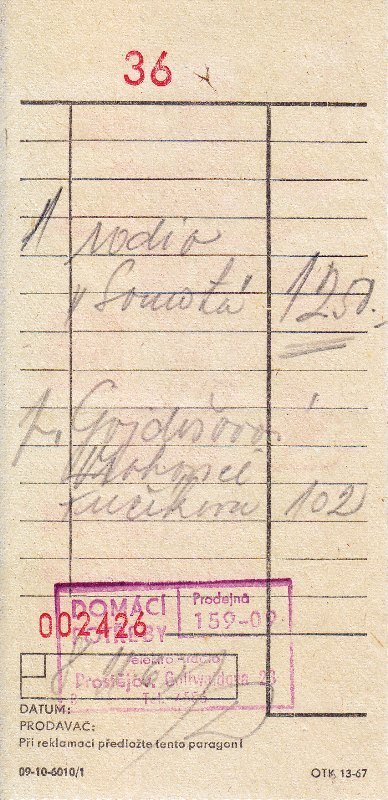 36
1 radio
"Sonata" 1250.
p. Gojdišová
Fučíkova 102
DOMÁCÍ
POTŘEBY
Prodejna
159-09
002426
elektro-radio
Prostějov, Gottwaldova 23
Tel.
DATUM:
PRODAVAČ:
Při reklamaci předložte tento paragon!
09-10-6010/1
OTK 13-67